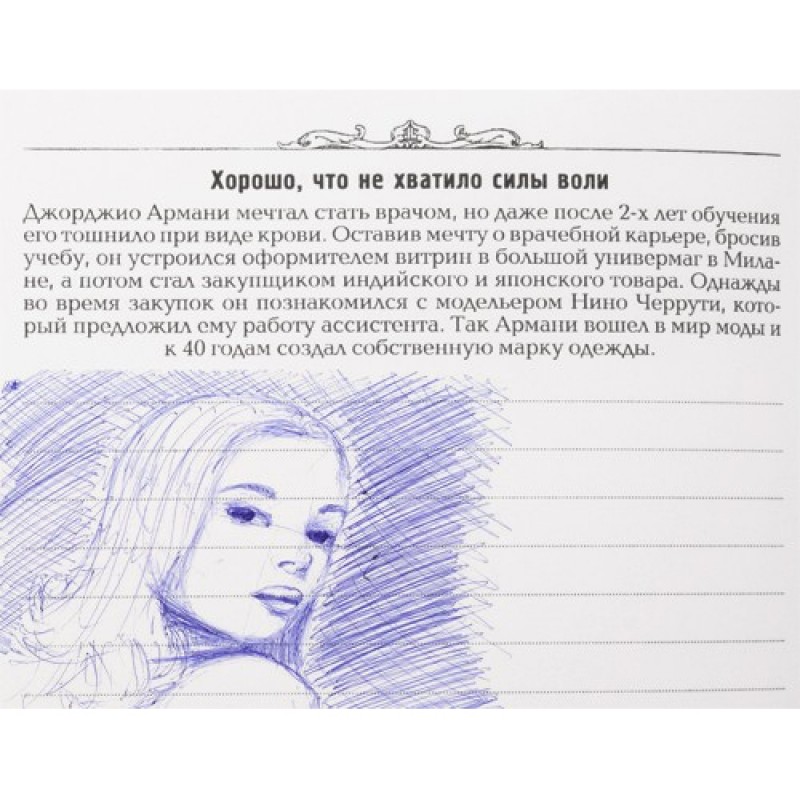 Хорошо, что не хватило силы воли
Джорджио Армани мечтал стать врачом, но даже после 2-х лет обучения
его тошнило при виде крови. Оставив мечту о врачебной карьере, бросив
учебу, он устроился оформителем витрин в большой универмаг в Мила-
не, а потом стал закупщиком индийского и японского товара. Однажды
во время закупок он познакомился с модельером Нино Черрути, кото-
рый предложил ему работу ассистента. Так Армани вошел в мир моды и
к 40 годам создал собственную марку одежды.